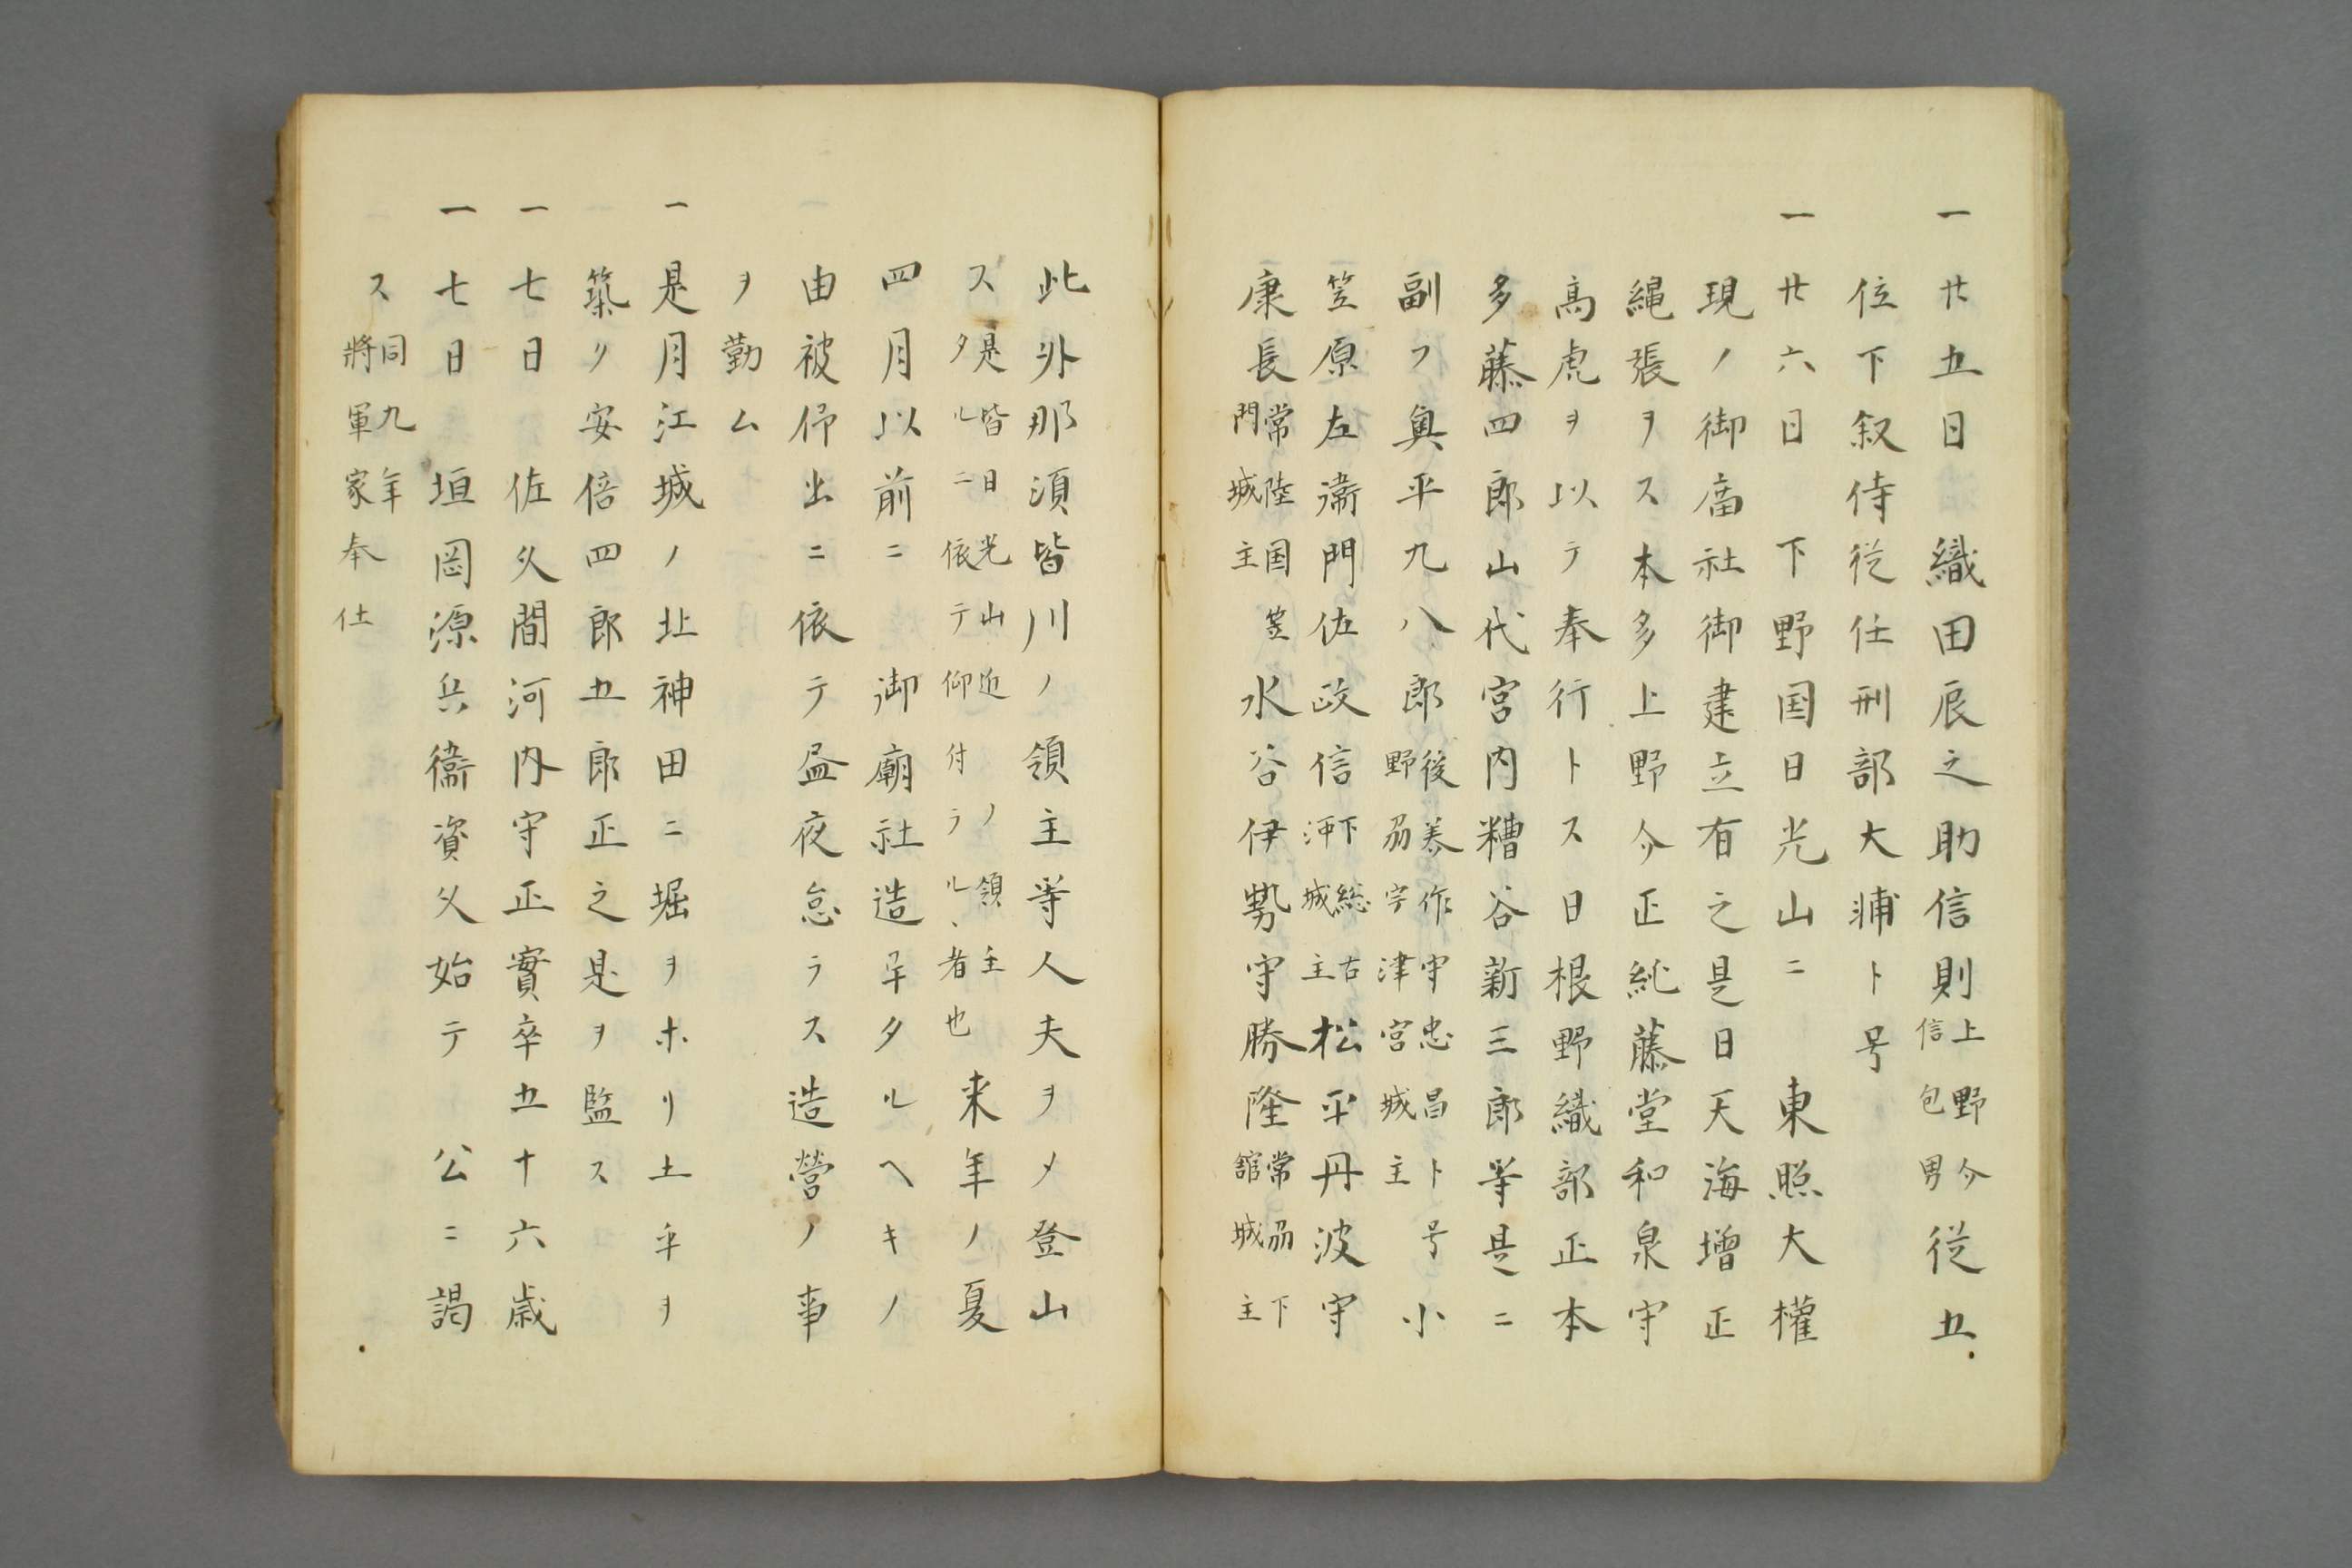 一廿五日　織田辰之助信則上野介信包男従五
位下叙侍従任刑部大浦ト号
一廿六日　下野国日光山ニ　東照大權
現ノ御庿社御建立有之是日天海增正
縄張ヲス本多上野介正純藤堂和泉守
高虎ヲ以テ奉行トス日根野織部正本
多藤四郎山代宮内糟谷新三郎等是ニ
副フ奥平九八郎後美作守忠昌ト号野刕宇津宮城主小
笠原左衛門佐政信下総古河城主松平丹波守
康長常陸国笠門城主水谷伊勢守勝隆常刕下舘城主
此外那須皆川ノ領主等人夫ヲメ登山
ス是皆日光山近ノ領主タルニ依テ仰付ラルヽ者也来年ノ夏
四月以前ニ　御廟社造畢タルヘキノ
由被仰出ニ依テ昼夜怠ラス造營ノ事
ヲ勤ム
一是月江城ノ北神田ニ堀ヲホリ土手ヲ
築リ安倍四郎五郎正之是ヲ監ス
一七日　佐久間河内守正實卒五十六歳
一七日　垣岡源兵衞資久始テ　公ニ謁
ス同九年將軍家奉仕